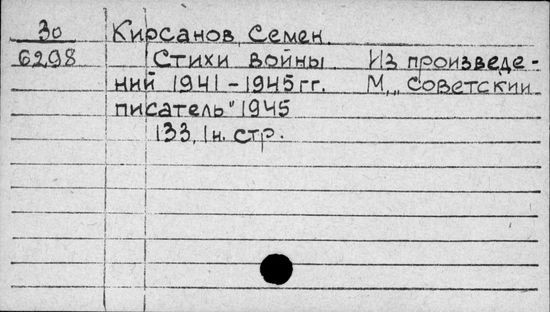 30 Кирсанов, Семен.
6298 Стихи войны Из произведе-
ний 1941-1945 гг. М., „Советский
писатель" 1945
133, 1 н. стр.